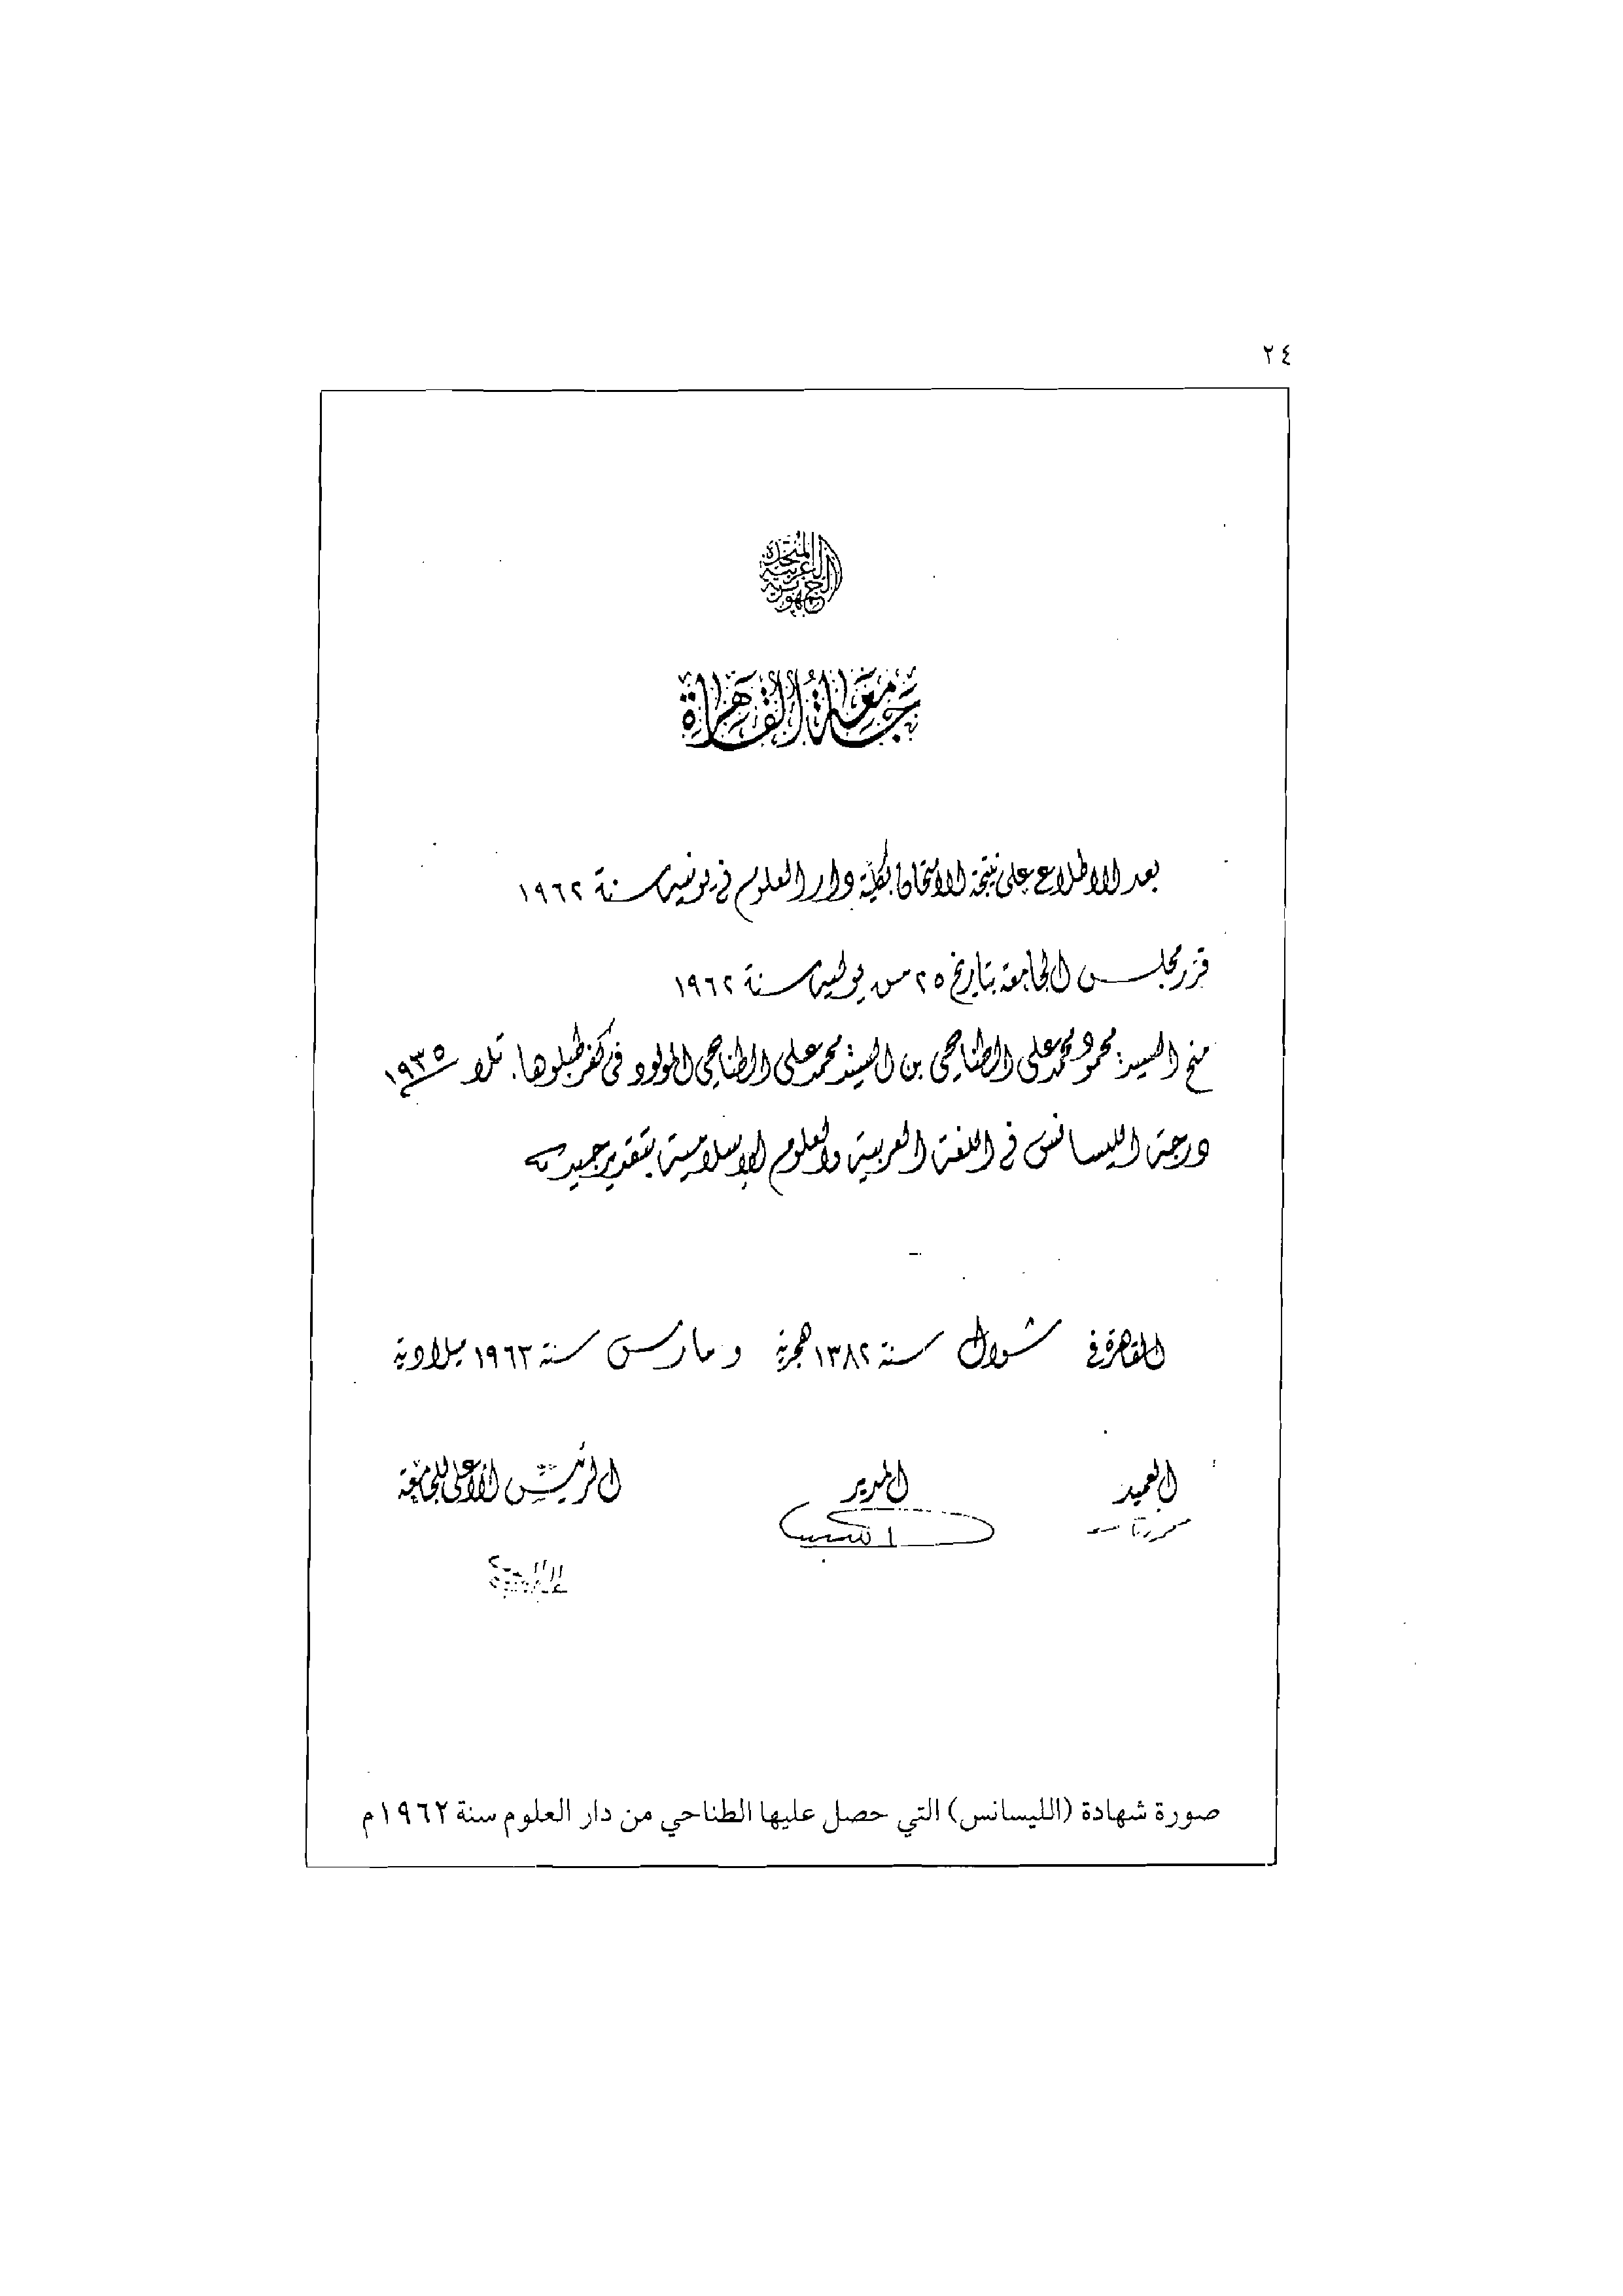 ٢٤
الجمهورية العربية المتحدة
جامعة القاهرة
بعد الاطلاع على نتيجة الامتحان بكلية دار العلوم في يونيه سنة ١٩٦٢
قرر مجلس الجامعة بتاريخ ٢٥ من يوليه سنة ١٩٦٢
منح السيد: محمود محمد على الطناحى بن السيد محمد على الطناحى المولود فى كفر طبلوها. تلا ١٩٣٥
درجة الليسانس في اللغة العربية والعلوم الإسلامية بتقدير جيد
القاهرة في شوال سنة ١٣٨٢ هجرية و مارس سنة ١٩٦٣ ميلادية
العميد المدير الرئيس الأعلى للجامعة
صورة شهادة (الليسانس) التي حصل عليها الطناحي من دار العلوم سنة ١٩٦٢م